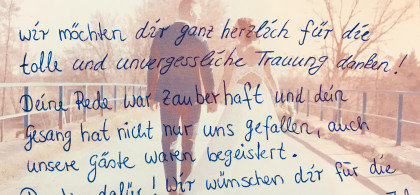 wir möchten dir ganz herzlich für die
tolle und unvergessliche Trauung danken!
Deine Rede war zauberhaft und dein
Gesang hat nicht nur uns gefallen, auch
unsere Gäste waren begeistert.
wir wünschen dir für die